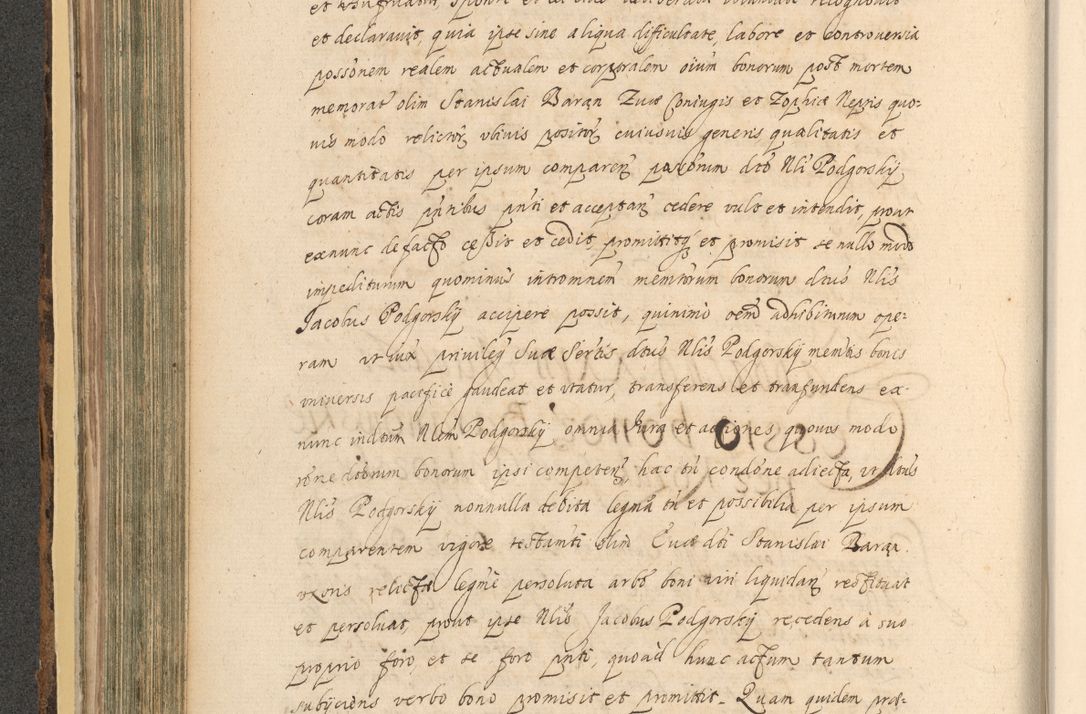 et declaravit, quia ipse sine aliqua difficultate, labore et controversia
possonem realem actualem et corporalem oium bonorum post mortem
memorat olim Stanislai Baran Evæ Coniugis et Zophiæ Neptis quo-
vis modo relictor ubivis positor cuiusvis generis qualitatis et
quantitatis per ipsum comparen dto Nli Podgorskÿ
coram actis pntibus pnti et acceptan cedere vult et intendit, prout
exnunc de facto cessit et cedit, promittitq et promisit se nullo modo
impediturum quominus intromnem bonorum dtus Nlis
Jacobus Podgorskÿ accipere possit, quinimo oem adhibiturum ope-
ram ut iux privileÿ Suæ dtus Nlis Podgorskÿ bonis
universis pacifice gaudeat et utatur, transferens et transfundens ex-
nunc in dtum Nlem Podgorskÿ omnia Iura et actiones quovis modo
rone dtorum bonorum ipsi competen, hac tn condone adiecta, ut dtus
Nlis Podgorskÿ nonnulla debita legma tn et possibilia per ipsum
comparentem vigore testamti olim Evæ dti Stanislai Baran
uxoris relictæ legme persoluta arbo boni viri liquidan restituat
et persolvat, prout ipse Nlis Jacobus Podgorskÿ recedens à suo
proprio foro, et se foro pnti, quoad hunc actum tantum
subÿciens verbo bono promisit et promittit. Quam quidem præ-